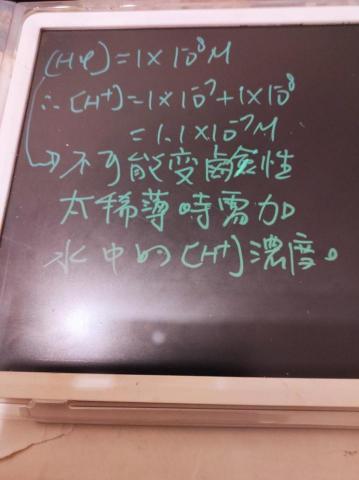 [HCl]=1×10⁻⁸M
∴[H⁺]=1×10⁻⁷+1×10⁻⁸
=1.1×10⁻⁷M
→不可能变鹼性
太稀薄時需加
水中的[H⁺]濃度。